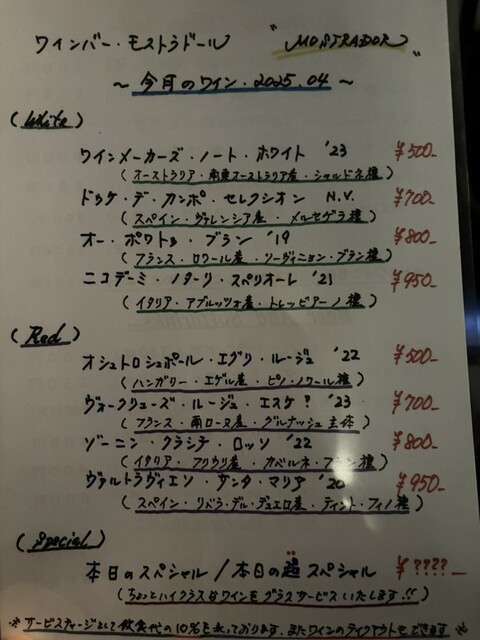 ワインバー・モストラドール "MOSTRADOR"
～今月のワイン・2025.04～
(White)
ワインメーカーズ・ノート・ホワイト '23 ¥500-
(オーストラリア・南東オーストラリア産・シャルドネ種)
ドゥケ・デ・カンポ・セレクシオン N.V. ¥700-
(スペイン・ヴァレンシア産・メルセゲラ種)
オー・ポワトゥ・ブラン '19 ¥800-
(フランス・ロワール産・ソーヴィニョン・ブラン種)
ニコデーミ・ノターリ・スペリオーレ '21 ¥950-
(イタリア・アブルッツォ産・トレッビアーノ種)
(Red)
オシュトロシュポール・エグリ・ルージュ '22 ¥500-
(ハンガリー・エゲル産・ピノ・ノワール種)
ヴォークリューズ・ルージュ・エスケ? '23 ¥700-
(フランス・南ローヌ産・グルナッシュ主体)
ゾーニン・クラシチ・ロッソ '22 ¥800-
(イタリア・フリウリ産・カベルネ・フラン種)
ヴァルトラヴィエソ・サンタ・マリア '20 ¥950-
(スペイン・リベラ・デル・デュエロ産・ティント・フィノ種)
(Special)
本日のスペシャル/本日の超スペシャル ¥????-
(ちょっとハイクラスなワインをグラスサービスいたします!!)
※サービスチャージとして飲食代の10%を頂いております。またワインのテイクアウトもできます※